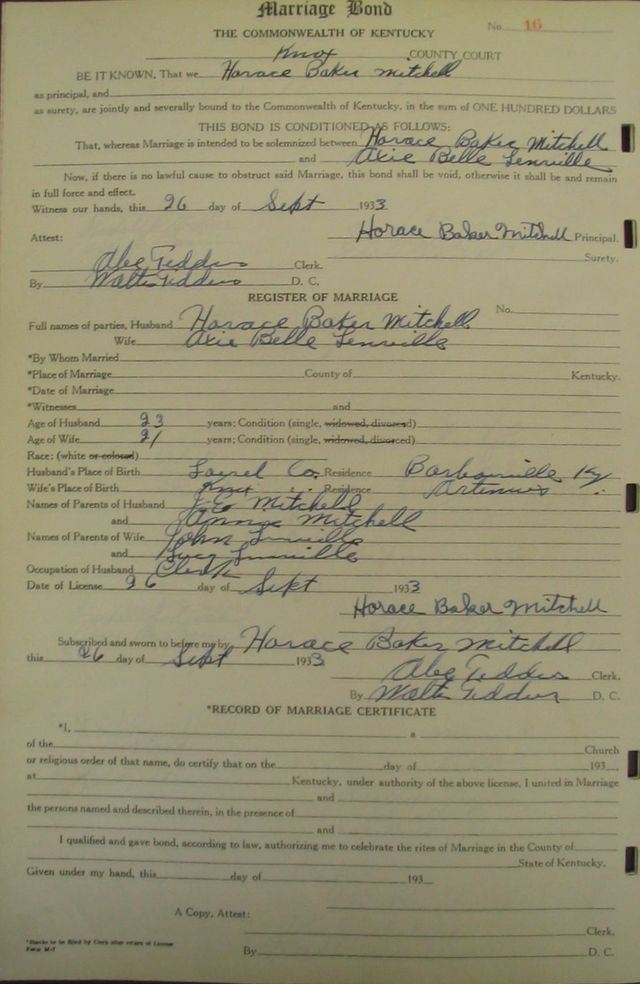 Marriage Bond
THE COMMONWEALTH OF KENTUCKY
No. 16
Knox COUNTY COURT
BE IT KNOWN, That we Horace Baker Mitchell
as principal, and
as surety, are jointly and severally bound to the Commonwealth of Kentucky, in the sum of ONE HUNDRED DOLLARS
THIS BOND IS CONDITIONED AS FOLLOWS:
That, whereas Marriage is intended to be solemnized between Horace Baker Mitchell
and Axie Belle Linville
Now, if there is no lawful cause to obstruct said Marriage, this bond shall be void, otherwise it shall be and remain
in full force and effect.
Witness our hands, this 26 day of Sept 1933
Horace Baker Mitchell Principal.
Attest:
Surety.
Abe Tedders Clerk.
By Walter Tedders D. C.
REGISTER OF MARRIAGE
No.
Full names of parties, Husband Horace Baker Mitchell
Wife Axie Belle Linville
*By Whom Married
*Place of Marriage County of Kentucky.
*Date of Marriage
*Witnesses and
Age of Husband 23 years; Condition (single, widowed, divorced)
Age of Wife 21 years; Condition (single, widowed, divorced)
Race: (white or colored)
Husband's Place of Birth Laurel Co. Residence Barbourville Ky
Wife's Place of Birth Knox " Residence Artemus "
Names of Parents of Husband Mitchell
and Mitchell
Names of Parents of Wife John Linville
and Lucy Linville
Occupation of Husband Clerk
Date of License 26 day of Sept 1933
Horace Baker Mitchell
Subscribed and sworn to before me by Horace Baker Mitchell
this 26 day of Sept 1933
Abe Tedders Clerk.
By Walter Tedders D. C.
*RECORD OF MARRIAGE CERTIFICATE
*I, a
of the Church
or religious order of that name, do certify that on the day of 193
at Kentucky, under authority of the above license, I united in Marriage
and
the persons named and described therein, in the presence of
and
I qualified and gave bond, according to law, authorizing me to celebrate the rites of Marriage in the County of
State of Kentucky.
Given under my hand, this day of 193
A Copy, Attest:
Clerk.
*Blanks to be filled by Clerk after return of License
Form M-1
By D. C.